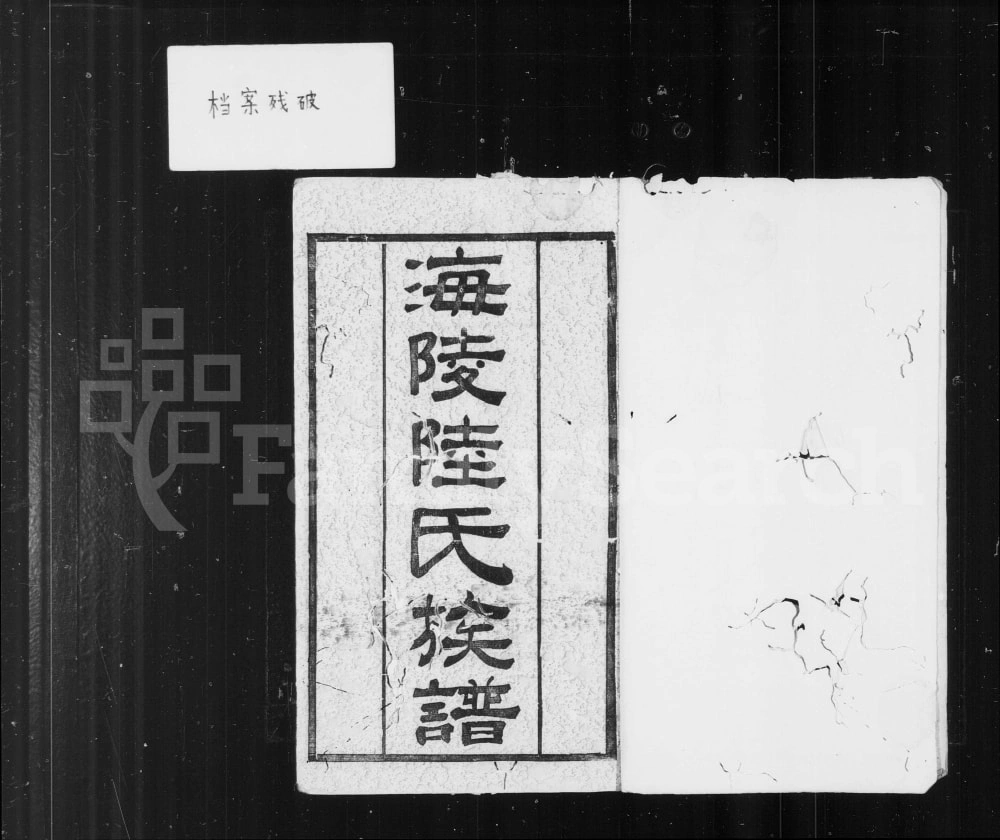 档案残破
海陵陸氏族譜
FamilySearch